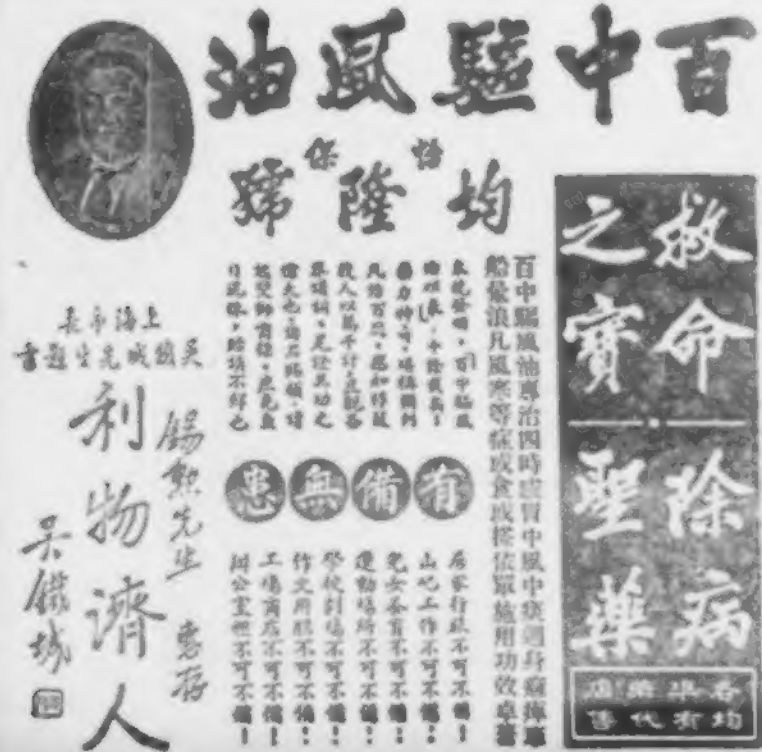 百中驅風油
怡保
均隆號
救命之寶
除病聖藥
各埠藥店
均有代售
百中驅風油專治四時感冒中風中痰遍身痲痺
船暈浪凡風寒等症或食或搽依單施用功效卓著
本號發明,百中驅風
油以來,十餘載矣!
有備無患
居家行旅不可不備!
山芭工作不可不備!
兒女養育不可不備!
運動場所不可不備!
學校劇場不可不備!
作文用腦不可不備!
工場商店不可不備!
辦公室裡不可不備!
上海市長
吳鐵城先生題書
錫勲先生 惠存
利物濟人
吳鐵城